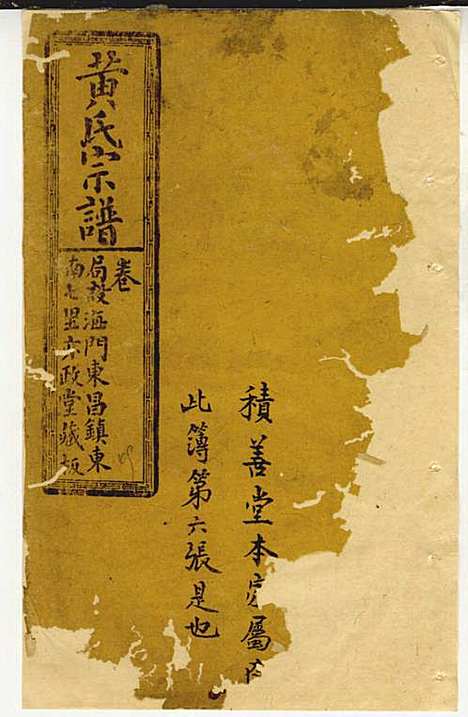 黃氏宗譜
卷
局設海門東昌鎮東
南七里亦政堂藏板
積善堂本家屬內
此簿第六張是也